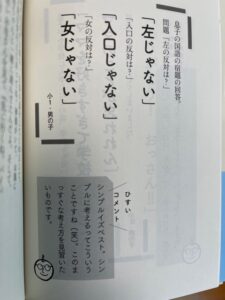 息子の国語の宿題の回答。
問題「左の反対は？」
「左じゃない」
「入口の反対は？」
「入口じゃない」
「女の反対は？」
「女じゃない」
小1・男の子
ひすい
コメント
シンプルイズベスト。シン
プルに考えるってこういう
ことですね（笑）。このま
っすぐな考え方を見習いた
いものです。